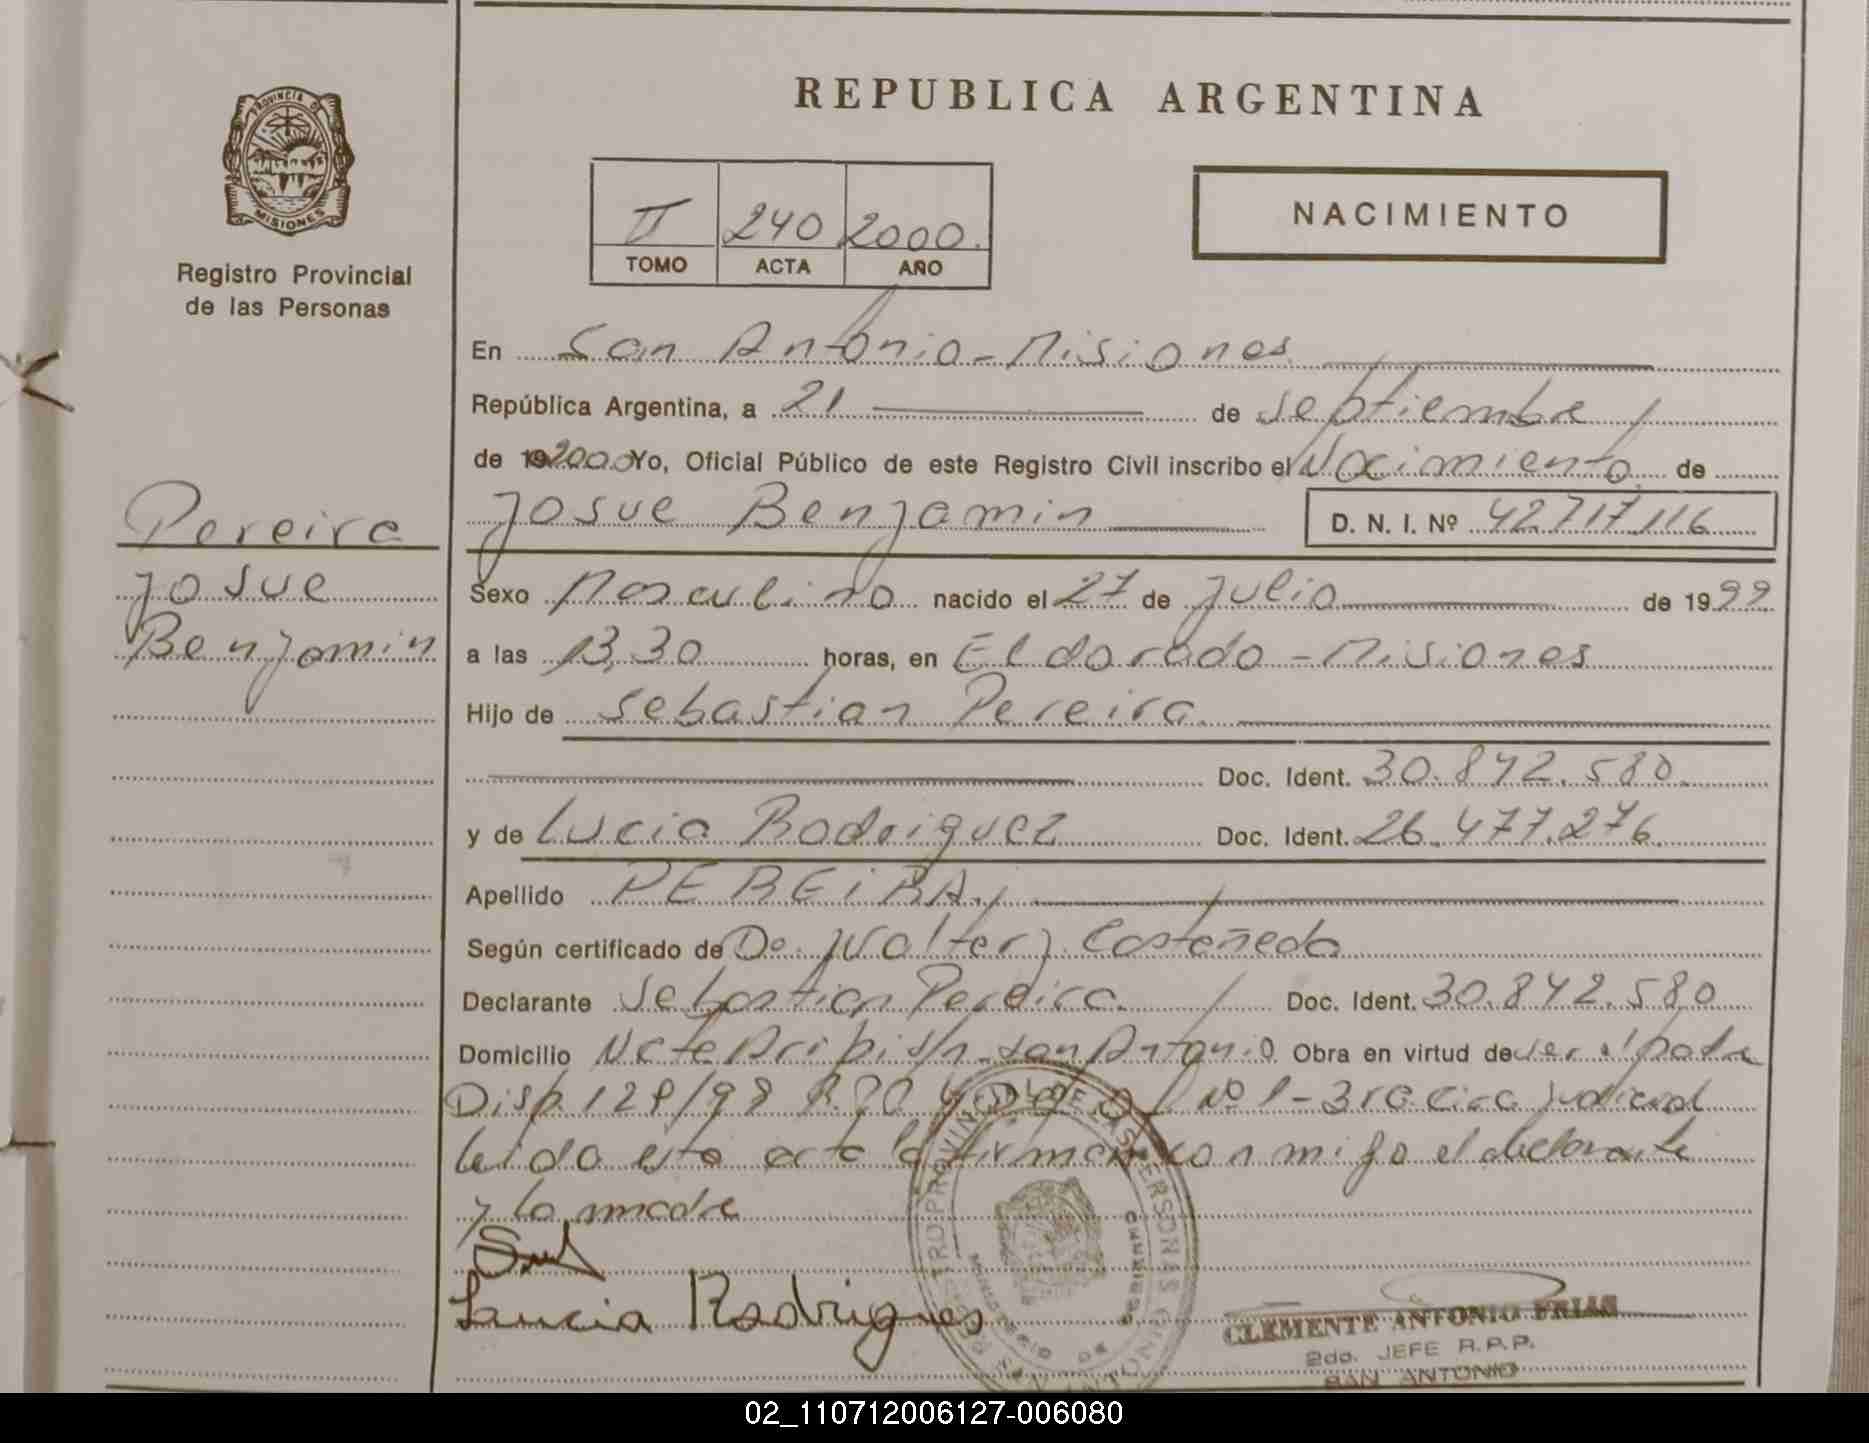 REPUBLICA ARGENTINA
PROVINCIA D
MISIONES
Registro Provincial
de las Personas
II 240 2000.
TOMO ACTA AÑO
NACIMIENTO
En San Antonio - Misiones
República Argentina, a 21 de septiembre
de 19 2000 Yo, Oficial Público de este Registro Civil inscribo el Nacimiento de
Pereira
Josue Benjamin D. N. I. Nº 42 717 116
Josue
Benjamin
Sexo Masculino nacido el 27 de Julio de 1999
a las 13,30 horas, en Eldorado - Misiones
Hijo de Sebastian Pereira.
Doc. Ident. 30.842.580.
y de Lucia Rodriguez Doc. Ident. 26.477.276.
Apellido PEREIRA,
Según certificado de Walter J. Castañeda
Declarante Sebastian Pereira. Doc. Ident. 30.842.580
Domicilio s/n. San Antonio Obra en virtud de ser el padre
Disp. 128/98 Nº 1 - 3ra circ. Judicial
leido esta acta la firman con migo el declarante
y la madre
Lucia Rodrigues
CLEMENTE ANTONIO FRIAS
2do. JEFE R.P.P.
SAN ANTONIO
02_110712006127-006080